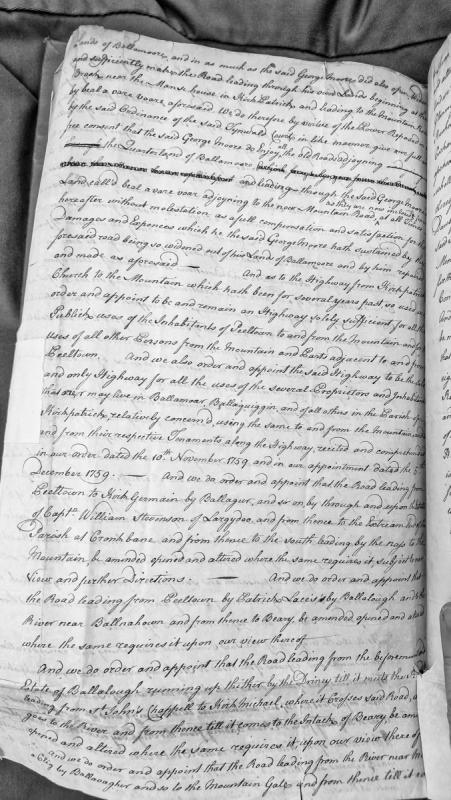 Lands of Ballamoore, and in as much as the said George Moore did also open
and sufficiently make the Road leading through his own Lands beginning at the
Brook near the Manse house in Kirk Patrick and leading to the Mountain
by beal a vare voare aforesaid We do therefore by virtue of the Power Reposed
by the said Ordinance of the said Tynwald Court in like manner give our full
free consent that the said George Moore do Enjoy all the old Road adjoining
the Quarterland of Ballamoore
and leading through the said George Moore
Land call'd beal a vare voar adjoyning to the now Mountain Road, as they are now inclosed, at all times
hereafter without molestation as a full compensation and satisfaction for all
Damages and Expences which he the said George Moore hath sustained by the
foresaid road being so widened out of his Lands of Ballamoore and by him repaired
and made as aforesaid — And as to the Highway from Kirk patrick
Church to the Mountain which hath been for several years past so used
order and appoint to be and remain an Highway solely sufficient for all the
Publick uses of the Inhabitants of Peeltown to and from the Mountain and for
uses of all other Persons from the Mountain and Parts adjacent to and from
Peeltown. And we also order and appoint the said Highway to be the sole
and only Highway for all the uses of the several Proprietors and Inhabitants
that are or may live in Ballamoar, Ballaquiggin, and of all others in the Parish of
Kirkpatrick, relatively concern'd, using the same to and from the Mountain and
and from their respective Tenaments along the Highway, recited and comprehended
in our order dated the 10th November 1759 and in our appointment dated the 5th
December 1759. — And we do order and appoint that the Road leading from
Peeltown to Kirk Germain by Ballagur, and so on by through and upon the
of Captn William Stevenson of Largydoo, and from thence to the Extream End of the
Parish at Cronkbane and from thence to the south leading by the nap to the
Mountain be amended opened and altered where the same requires it, subject to our
View and further Directions. — And we do order and appoint that
the Road leading from Peeltown by Patrick Lace's by Ballalough and the
River near Ballnahown and from thence to Beary, be amended, opened and altered
where the same requires it upon our view thereof
And we do order and appoint that the Road leading from the beforementioned
Estate of Ballalough running up thither by the Driney till it meets the
leading from St John's Chappell to Kirk Michael, where it Crosses said Road,
goes to the River and from thence till it comes to the Intack of Beary, be amended
opened and altered where the same requires it upon our view thereof
and we do order and appoint that the Road leading from the River near
by Ballavagher and so to the Mountain Gate and from thence till it